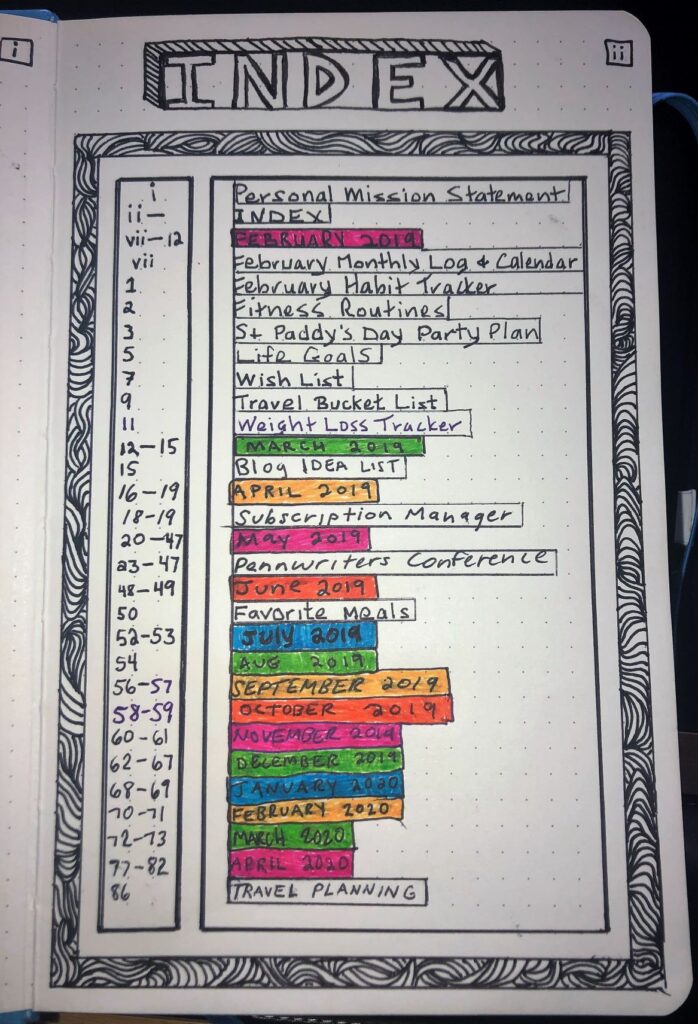 i
ii
INDEX
i Personal Mission Statement
ii— INDEX
vii—12 FEBRUARY 2019
vii February Monthly Log & Calendar
1 February Habit Tracker
2 Fitness Routines
3 St Paddy's Day Party Plan
5 Life Goals
7 Wish List
9 Travel Bucket List
11 Weight Loss Tracker
12-15 MARCH 2019
15 Blog IDEA LIST
16-19 APRIL 2019
18-19 Subscription Manager
20-47 May 2019
23-47 Pennwriters Conference
48-49 June 2019
50 Favorite Meals
52-53 JULY 2019
54 AUG 2019
56-57 SEPTEMBER 2019
58-59 OCTOBER 2019
60-61 NOVEMBER 2019
62-67 DECEMBER 2019
68-69 JANUARY 2020
70-71 FEBRUARY 2020
72-73 MARCH 2020
77-82 APRIL 2020
86 TRAVEL PLANNING